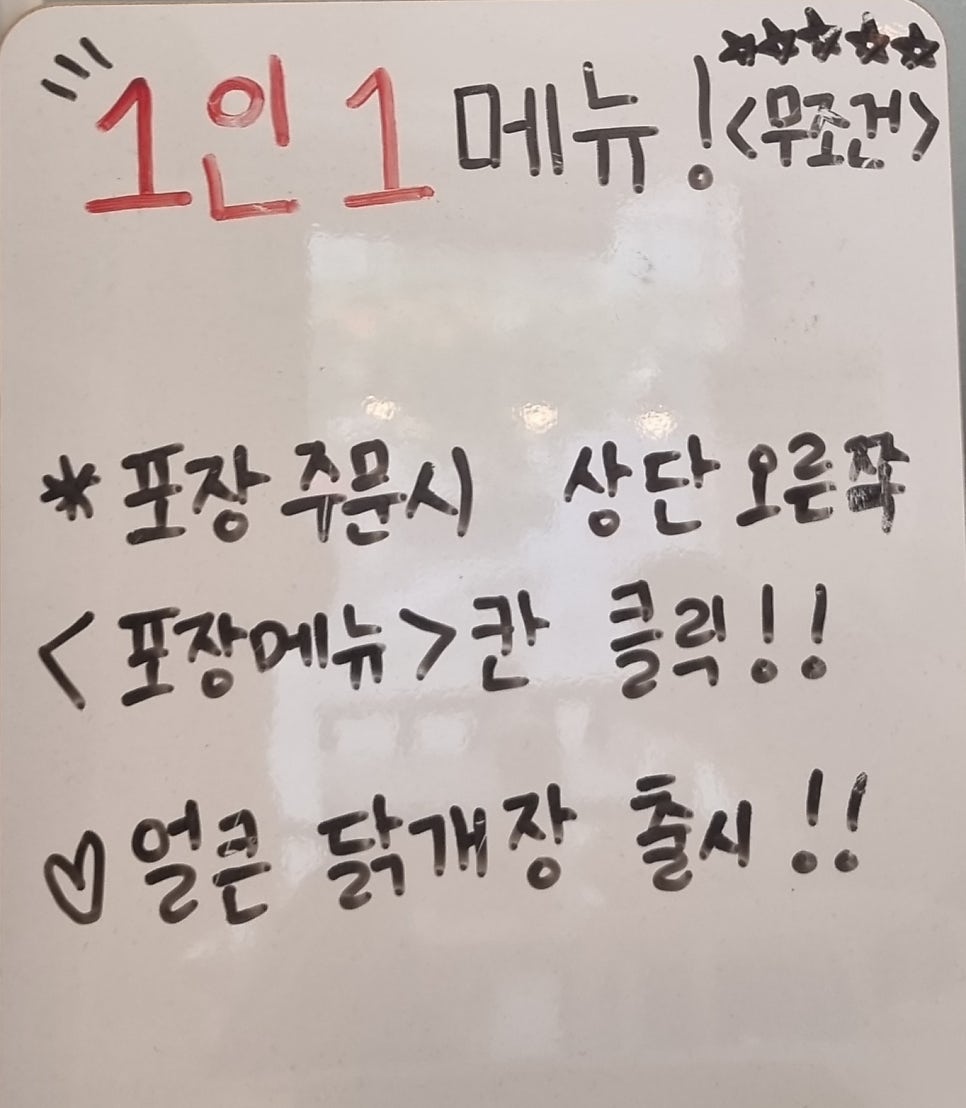 ★★★★★
1인1 메뉴! <무조건>
*포장 주문시 상단 오른쪽
<포장메뉴>칸 클릭!!
♡얼큰 닭개장 출시!!